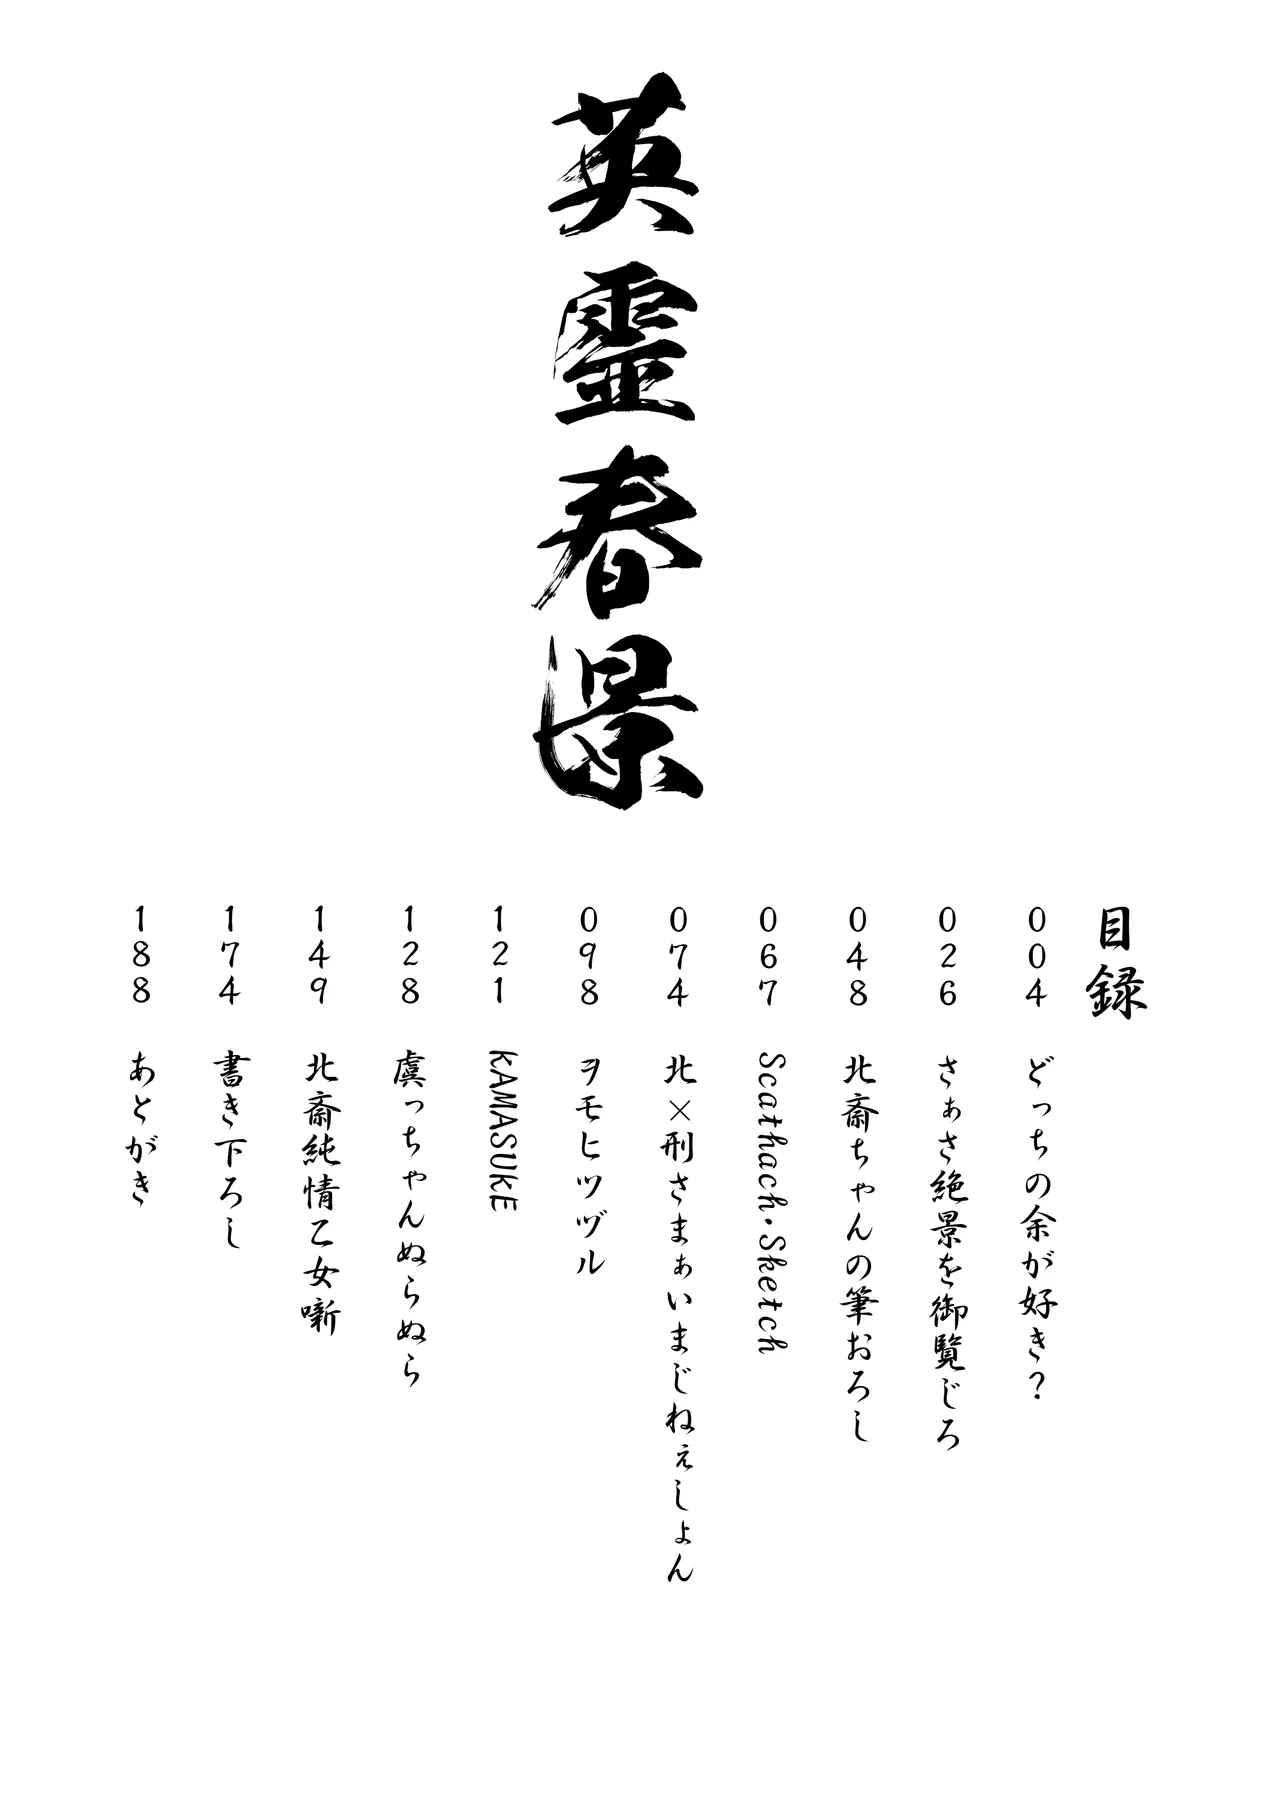 英霊春景
目録
004 どっちの余が好き?
026 さぁさ絶景を御覧じろ
048 北斎ちゃんの筆おろし
067 Scathach・Sketch
074 北×刑さまぁいまじねぇしょん
098 ヲモヒツヅル
121 KAMASUKE
128 虞っちゃんぬらぬら
149 北斎純情乙女噺
174 書き下ろし
188 あとがき